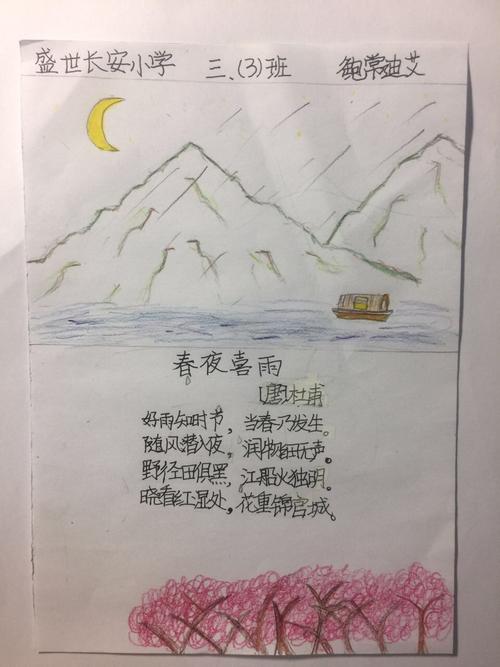 盛世长安小学 三、(3)班 鲍常迪艾
春夜喜雨
[唐]杜甫
好雨知时节，当春乃发生。
随风潜入夜，润物细无声。
野径田俱黑，江船火独明。
晓看红湿处，花重锦官城。